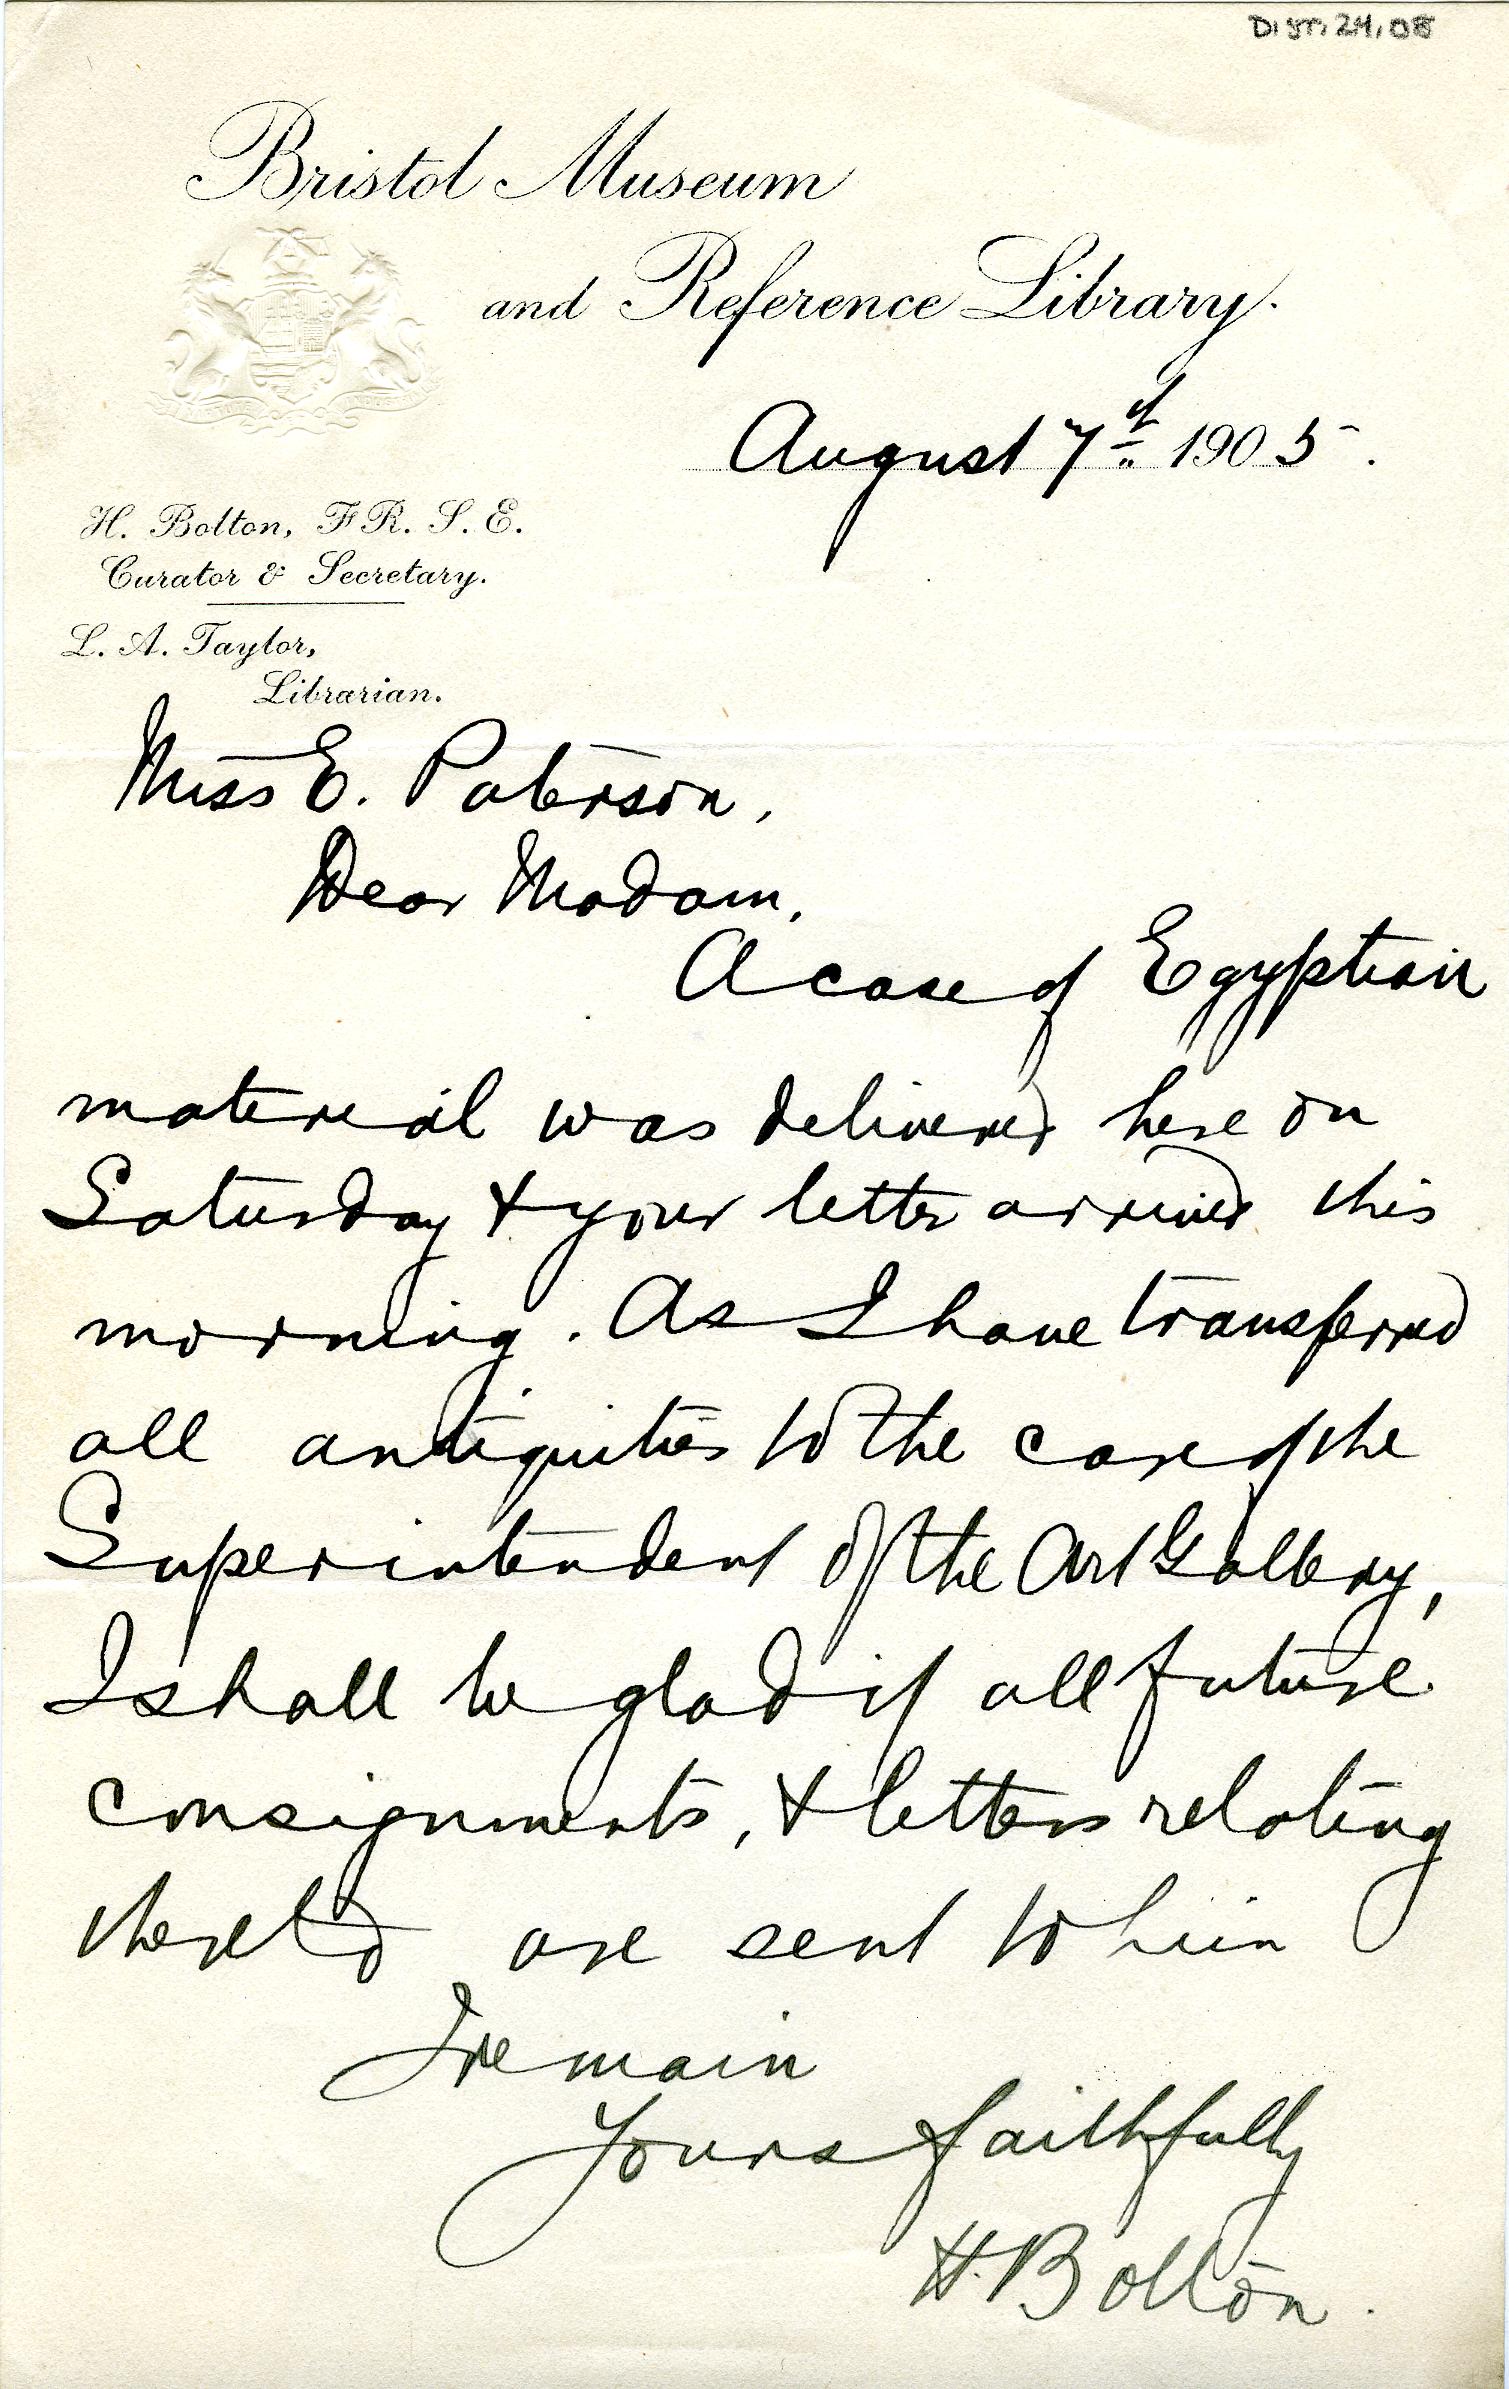 DIST.24.08
Bristol Museum
and Reference Library.
August 7th 1905.
H. Bolton, F.R.S.E.
Curator & Secretary.
L. A. Taylor,
Librarian.
Miss E. Paterson,
Dear Madam,
A case of Egyptian
material was delivered here on
Saturday & your letter arrived this
morning. As I have transferred
all antiquities to the care of the
Superintendent of the Art Gallery,
I shall be glad if all future
consignments, & letters relating
thereto are sent to him
I remain
Yours faithfully
H. Bolton.